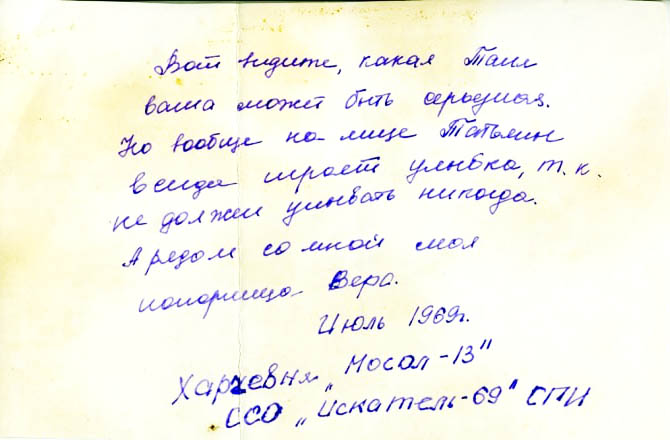 Вот видите, какая Таня
ваша может быть серьезная.
Но вообще на лице Татьяны
всегда играет улыбка, т.к.
не должен унывать никогда.
А рядом со мной моя
напарница Вера.
Июль 1969г.
Харчевня „Мосал-13"
ССО „Искатель-69" СПИ